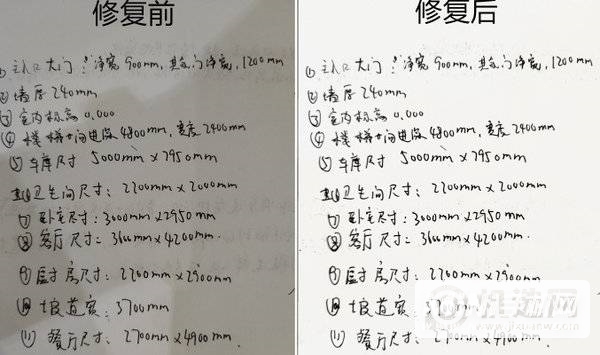 修复前
① 主入口大门：净宽900mm，其它门净宽，1200mm
② 墙厚240mm
③ 室内标高0.000
④ 楼梯间进深4800mm，宽度2400mm
⑤ 车库尺寸 5000mm×2950mm
卫生间尺寸：2200mm×2000mm
⑦ 卧室尺寸：3000mm×2950mm
⑧ 客厅尺寸：3600mm×4200mm.
⑨ 厨房尺寸：2200mm×2900mm
⑩ 坡道宽：3700mm
⑪ 餐厅尺寸：2700mm×4900mm.
修复后
① 主入口大门：净宽900mm，其它门净宽，1200mm
② 墙厚240mm
③ 室内标高0.000
④ 楼梯间进深4800mm，宽度2400mm
⑤ 车库尺寸 5000mm×2950mm
卫生间尺寸：2200mm×2000mm
⑦ 卧室尺寸：3000mm×2950mm
⑧ 客厅尺寸：3600mm×4200mm.
⑨ 厨房尺寸：2200mm×2900mm
⑩ 坡道宽：3700mm
⑪ 餐厅尺寸：2700mm×4900mm.
机选网